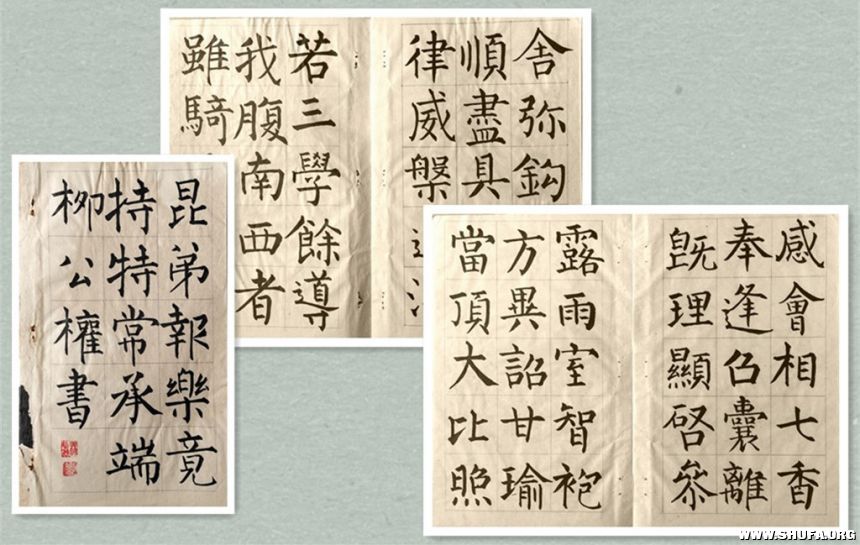 舍弥鈎
順盡具
律威槃
若三學餘導
我腹南西者
雖騎
昆弟報樂竟
持特常承端
柳公權書
感會相七香
奉逢召囊離
既理顯啓叅
露雨室智袍
方異詔甘瑜
當頂大比照
WWW.SHUFA.ORG